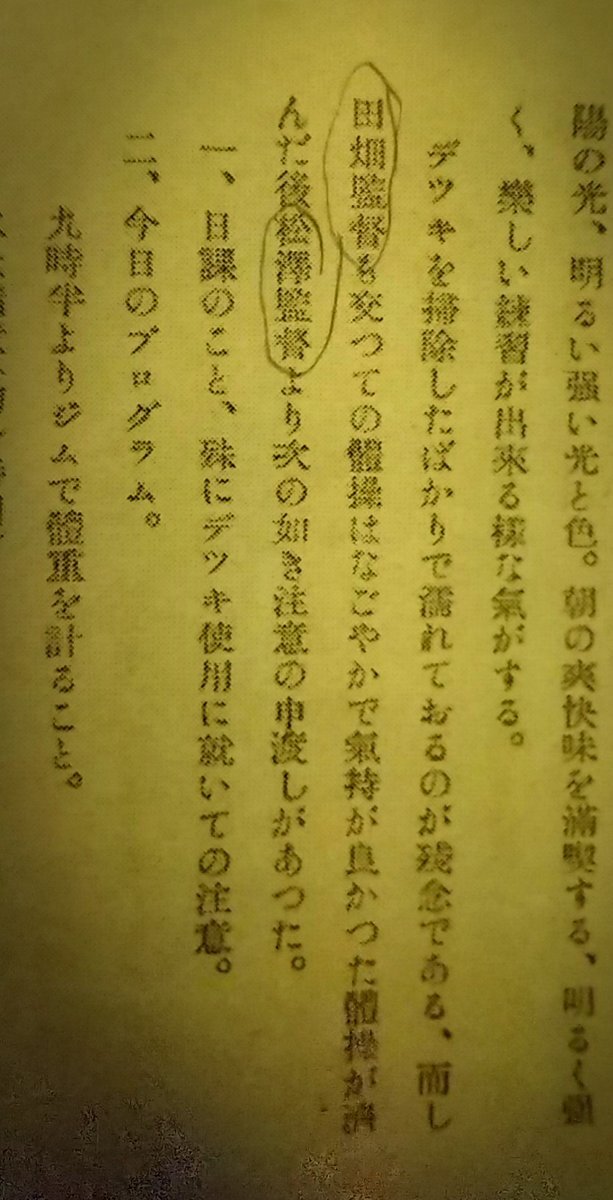 陽の光、明るい强い光と色。朝の爽快味を滿喫する、明るく强
く、樂しい練習が出來る樣な氣がする。
デツキを掃除したばかりで濡れておるのが残念である、而し
田畑監督も交つての體操はなごやかで氣持が良かつた體操が濟
んだ後松澤監督より次の如き注意の申渡しがあつた。
一、日課のこと、殊にデツキ使用に就いての注意。
二、今日のプログラム。
九時半よりジムで體重を計ること。